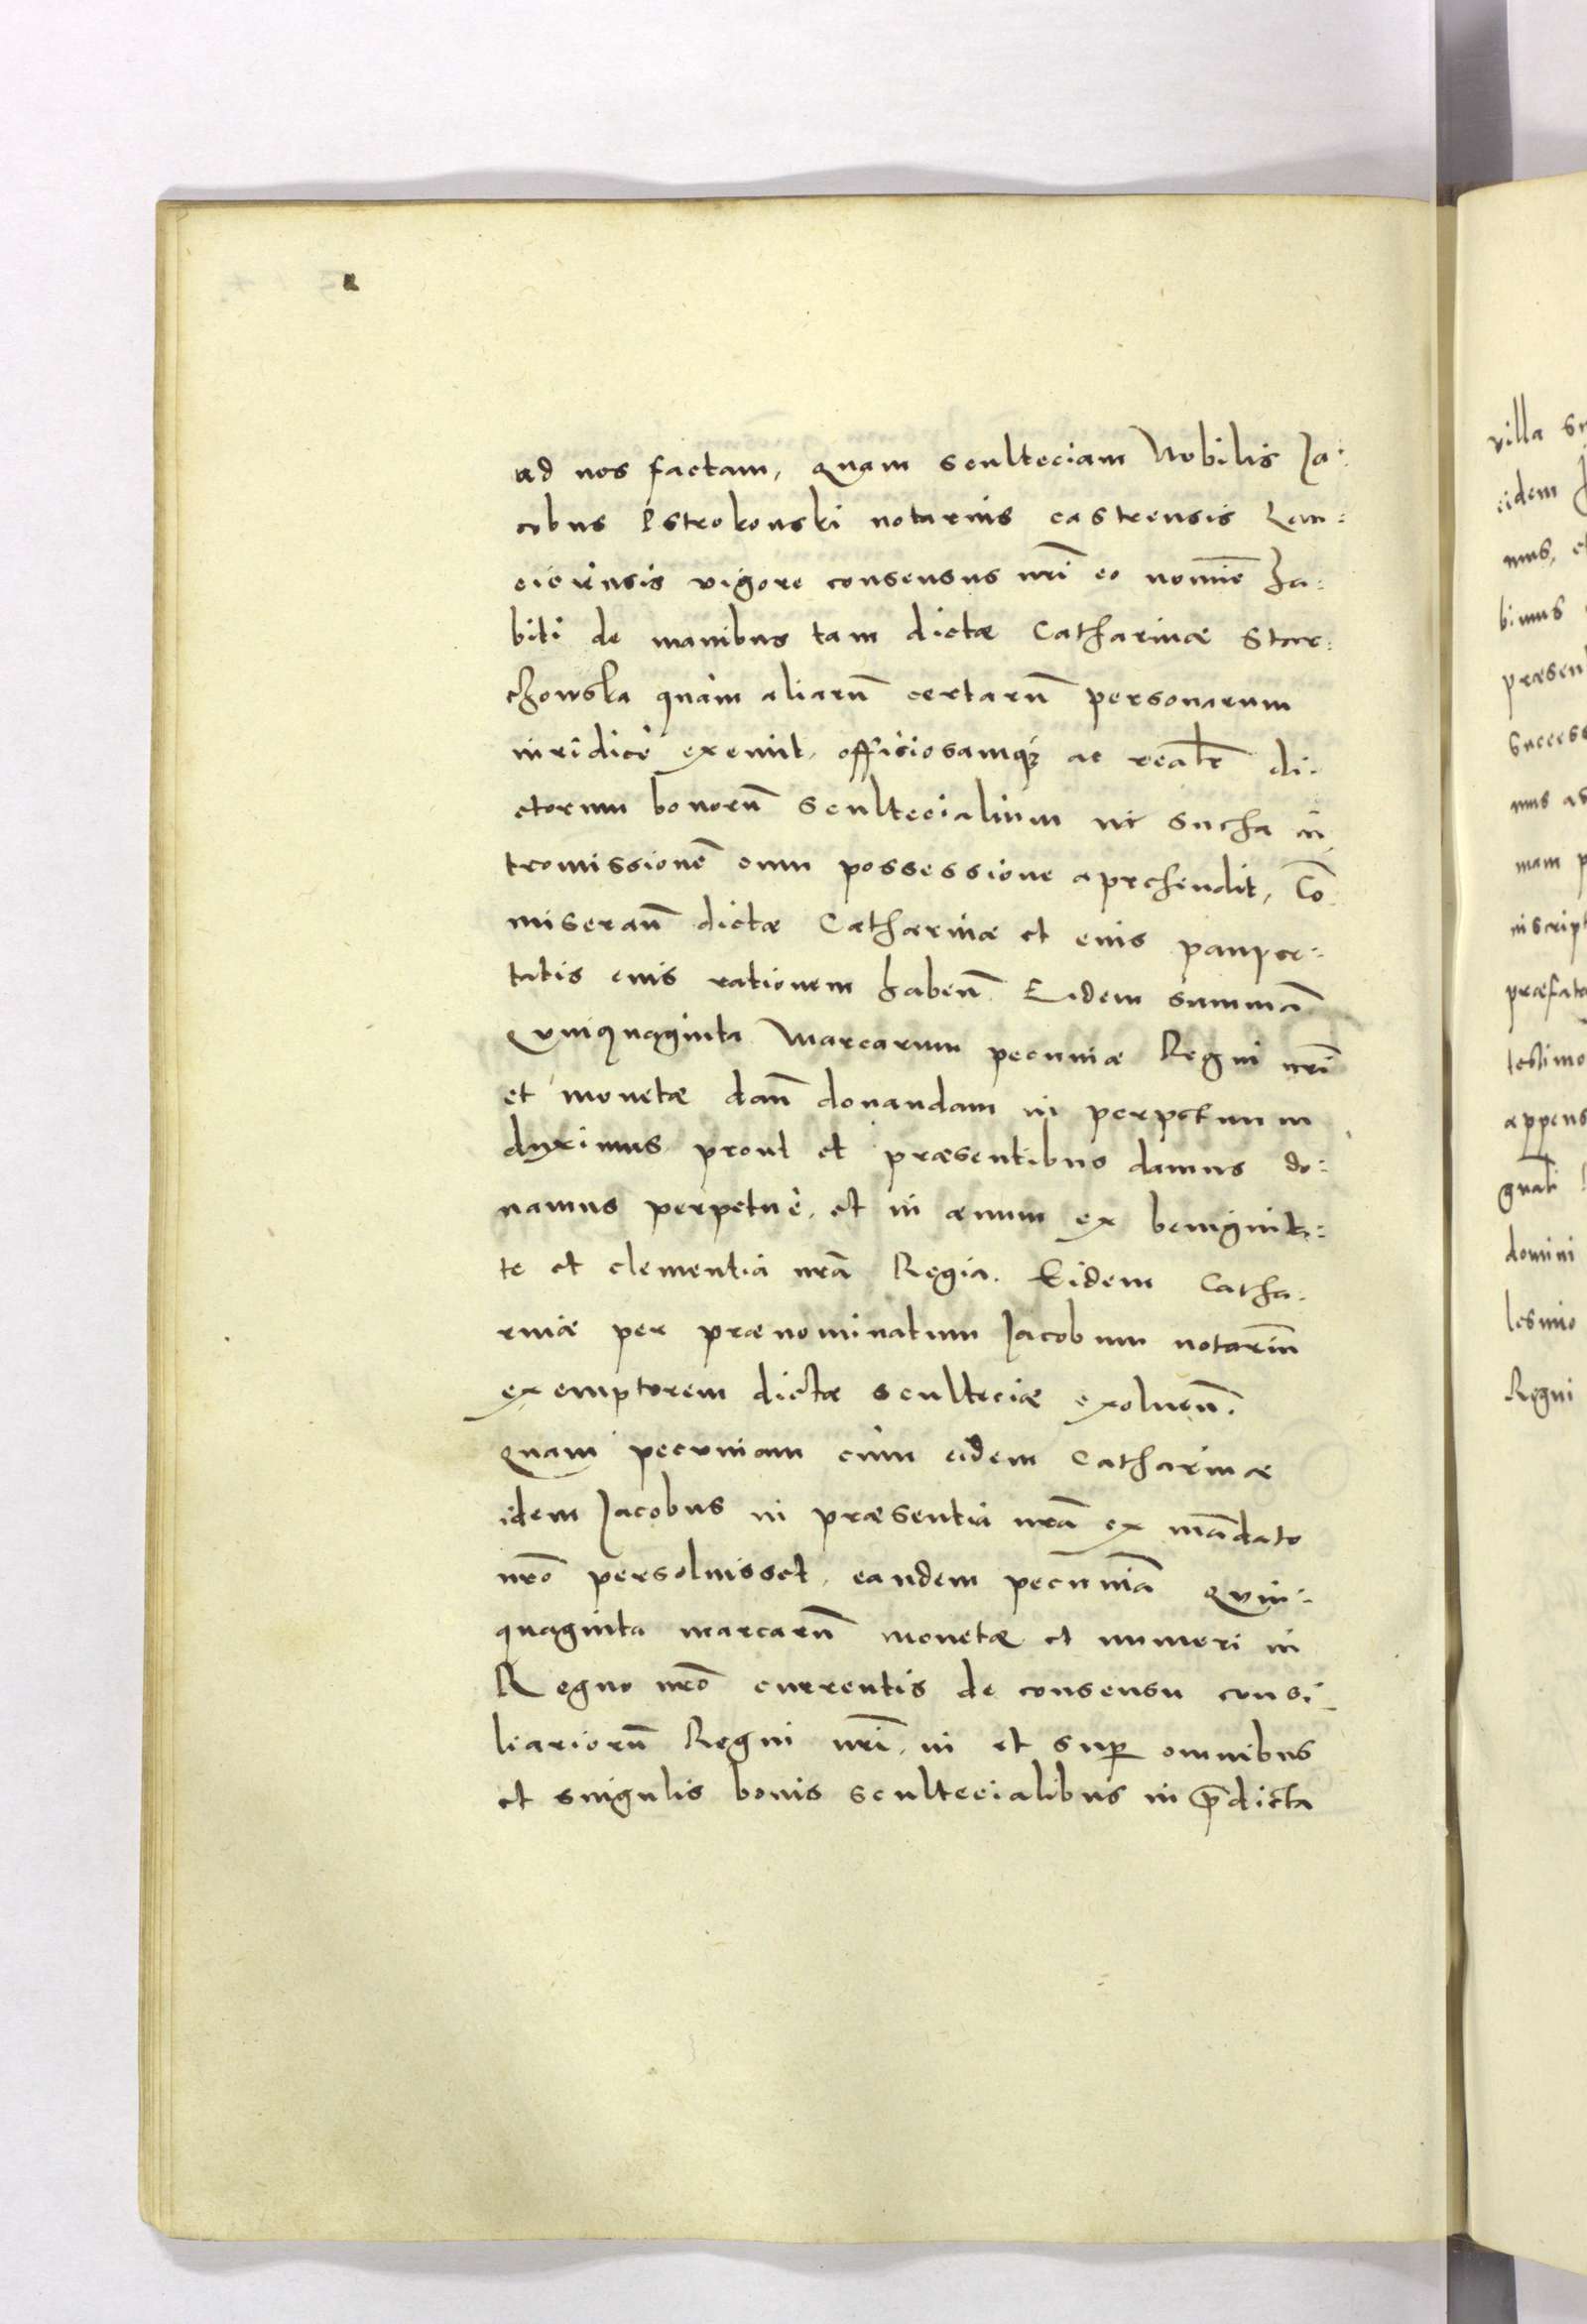 ad nos factam, quam sculteciam Nobilis Ja:
cobus Pstrokonski notarius castrensis Lan:
ciciensis vigore consensus nrĩ eo nomiē ha:
biti de manibus tam dictæ Catharinæ Star:
chowska quàm aliarũ certarũ personarum
iuridicè exemit, officiosamq; ac realr̃ di:
ctorum bonorũ scultecialium in Sucha in
tromissionẽ cum possessione aprehendit, Cõ
miseraũ dictæ Catharinæ et eius pauper:
tatis eius rationem habeñ Eidem summã
Quinquaginta Marcarum pecuniæ Regni nrĩ
et monetæ dañ donandam in perpetuum
duximus prout et præsentibus damus do:
namus perpetuè, et in æuum ex benignita:
te et clementia nrã Regia. Eidem Catha:
rinæ per prænominatum Jacobum notariũ
exemptorem dictæ sculteciæ exoluen̄.
Quam pecuniam cùm eidem Catharinæ
idem Jacobus in præsentia nrã ex mãdato
nrõ persoluisset, eandem pecuniã Quin:
quaginta marcarũ monetæ et numeri in
Regno nrõ currentis de consensu consi
liariorũ Regni nrĩ, in et sup̃ omnibus
et singulis bonis scultecialibus in p̃dicta
villa Su
eidem J
mus, et
bimus
præsen
success
mus as
mam p
inscript
præfata
testimo
appens
gnati
domini
lesimo
Regni